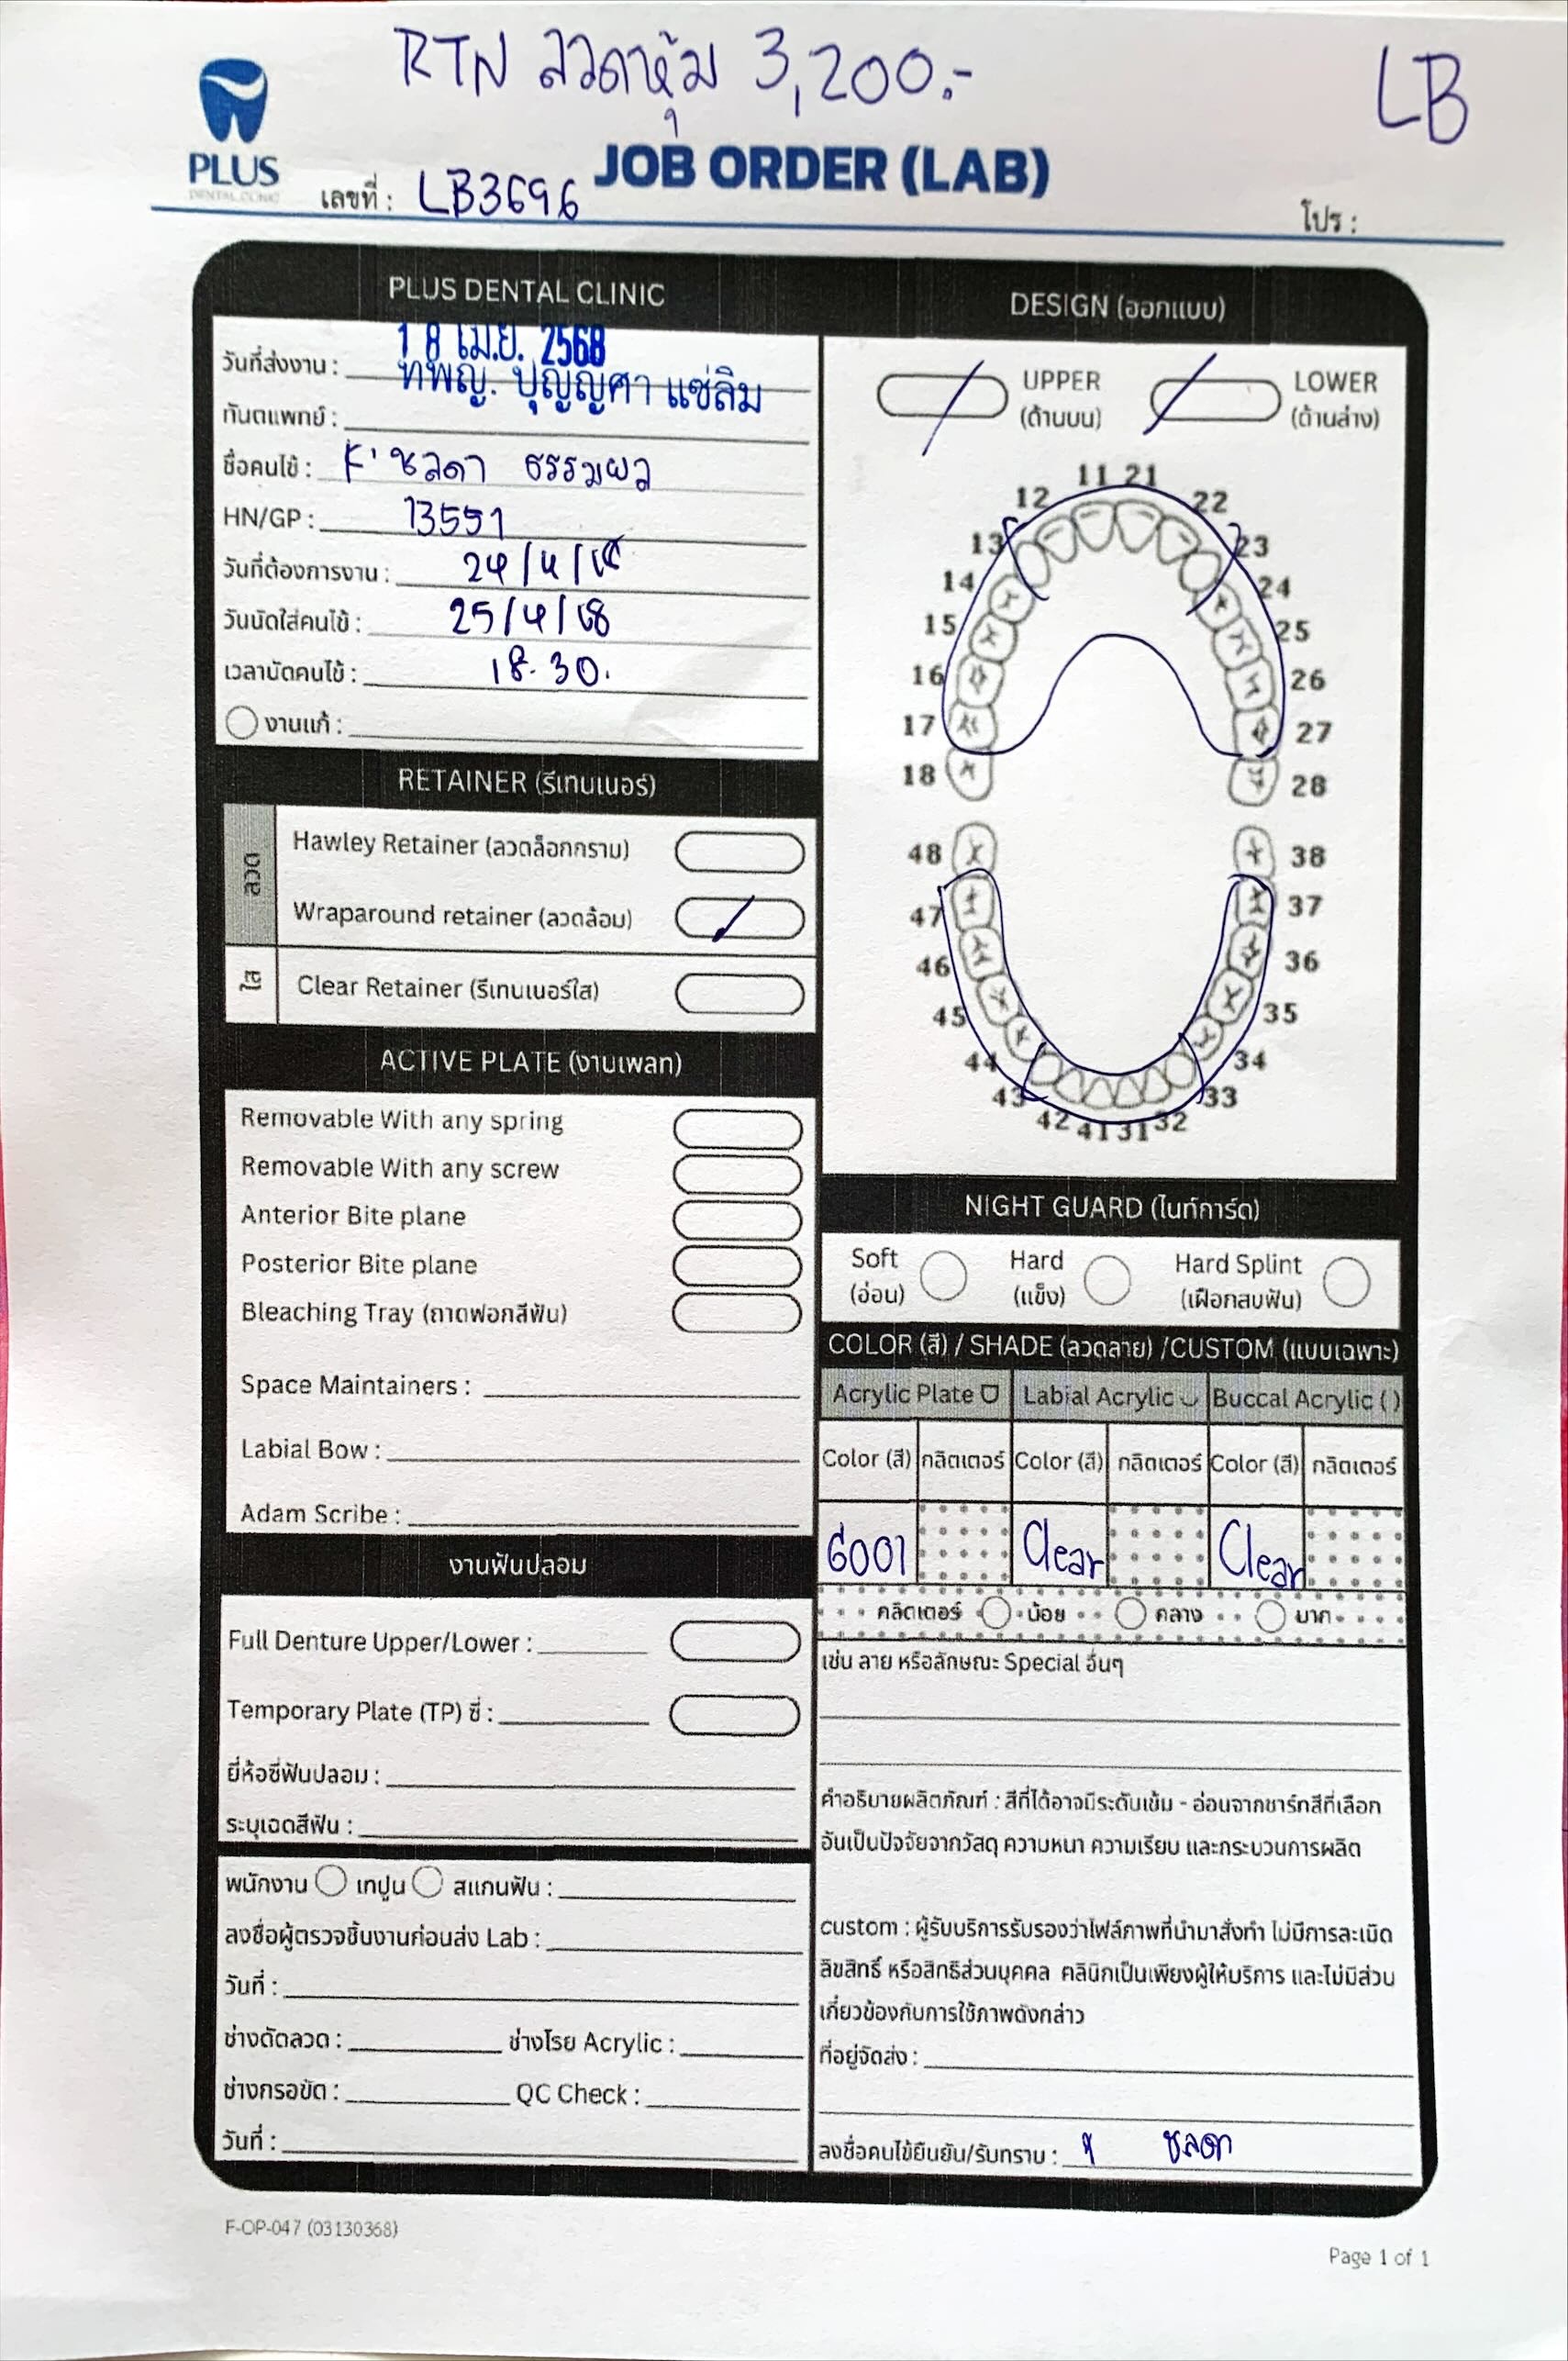 RTN ลวดหุ้ม 3,200.-
LB
PLUS
DENTAL CLINIC
JOB ORDER (LAB)
เลขที่ : LB3696
โปร :
PLUS DENTAL CLINIC
วันที่ส่งงาน : 18 เม.ย. 2568
ทันตแพทย์ : ทพญ. ปุญญศา แซ่ลิม
ชื่อคนไข้ : K' ชลดา ธรรมผล
HN/GP : 13551
วันที่ต้องการงาน : 24/4/68
วันนัดใส่คนไข้ : 25/4/68
เวลานัดคนไข้ : 18.30.
งานแก้ :
RETAINER (รีเทนเนอร์)
ลวด
Hawley Retainer (ลวดล็อกกราม)
Wraparound retainer (ลวดล้อม)
ใส
Clear Retainer (รีเทนเนอร์ใส)
ACTIVE PLATE (งานเพลท)
Removable With any spring
Removable With any screw
Anterior Bite plane
Posterior Bite plane
Bleaching Tray (ถาดฟอกสีฟัน)
Space Maintainers :
Labial Bow :
Adam Scribe :
งานฟันปลอม
Full Denture Upper/Lower :
Temporary Plate (TP) ซี่ :
ยี่ห้อซี่ฟันปลอม :
ระบุเฉดสีฟัน :
พนักงาน เทปูน สแกนฟัน :
ลงชื่อผู้ตรวจชิ้นงานก่อนส่ง Lab :
วันที่ :
ช่างดัดลวด : ช่างโรย Acrylic :
ช่างกรอขัด : QC Check :
วันที่ :
DESIGN (ออกแบบ)
UPPER LOWER
(ด้านบน) (ด้านล่าง)
11 21
12 22
13 23
14 24
15 25
16 26
17 27
18 28
48 38
47 37
46 36
45 35
44 34
43 33
42 41 31 32
NIGHT GUARD (ไนท์การ์ด)
Soft Hard Hard Splint
(อ่อน) (แข็ง) (เฝือกสบฟัน)
COLOR (สี) / SHADE (ลวดลาย) /CUSTOM (แบบเฉพาะ)
Acrylic Plate Labial Acrylic Buccal Acrylic ( )
Color (สี) กลิตเตอร์ Color (สี) กลิตเตอร์ Color (สี) กลิตเตอร์
6001 Clear Clear
กลิตเตอร์ น้อย กลาง มาก
เช่น ลาย หรือลักษณะ Special อื่นๆ
คำอธิบายผลิตภัณฑ์ : สีที่ได้อาจมีระดับเข้ม - อ่อนจากชาร์ทสีที่เลือก
อันเป็นปัจจัยจากวัสดุ ความหนา ความเรียบ และกระบวนการผลิต
custom : ผู้รับบริการรับรองว่าไฟล์ภาพที่นำมาสั่งทำ ไม่มีการละเมิด
ลิขสิทธิ์ หรือสิทธิส่วนบุคคล คลินิกเป็นเพียงผู้ให้บริการ และไม่มีส่วน
เกี่ยวข้องกับการใช้ภาพดังกล่าว
ที่อยู่จัดส่ง :
ลงชื่อคนไข้ยืนยัน/รับทราบ : ชลดา
F-OP-047 (03130368)
Page 1 of 1